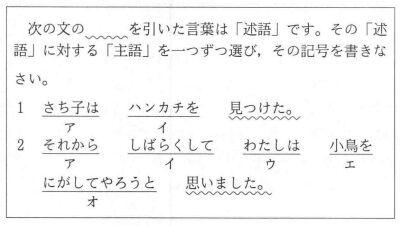 次の文の﹏﹏を引いた言葉は「述語」です。その「述
語」に対する「主語」を一つずつ選び，その記号を書きな
さい。
1 さち子は ハンカチを 見つけた。
ア イ
2 それから しばらくして わたしは 小鳥を
ア イ ウ エ
にがしてやろうと 思いました。
オ